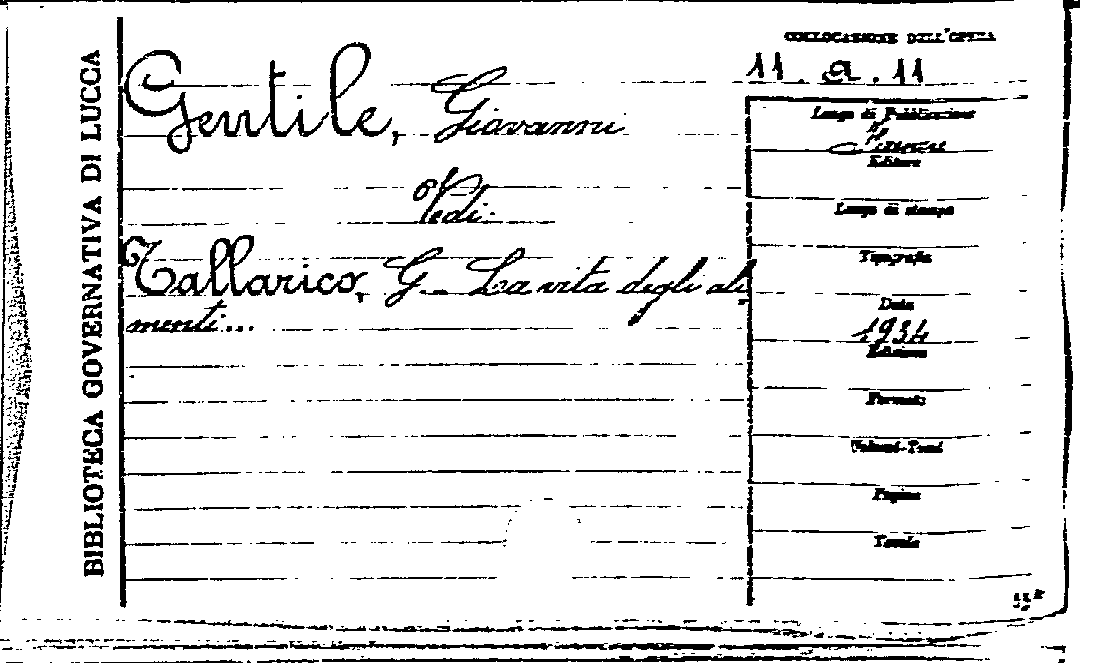 BIBLIOTECA GOVERNATIVA DI LUCCA
COLLOCAZIONE DELL'OPERA
11. a. 11
Gentile, Giovanni
Vedi:
Tallarico, G. La vita degli ali
menti...
Luogo di Pubblicazione
Firenze
Editore
Luogo di stampa
Tipografia
Data
1934
Edizione
Formato
Volumi-Tomi
Pagine
Tavole